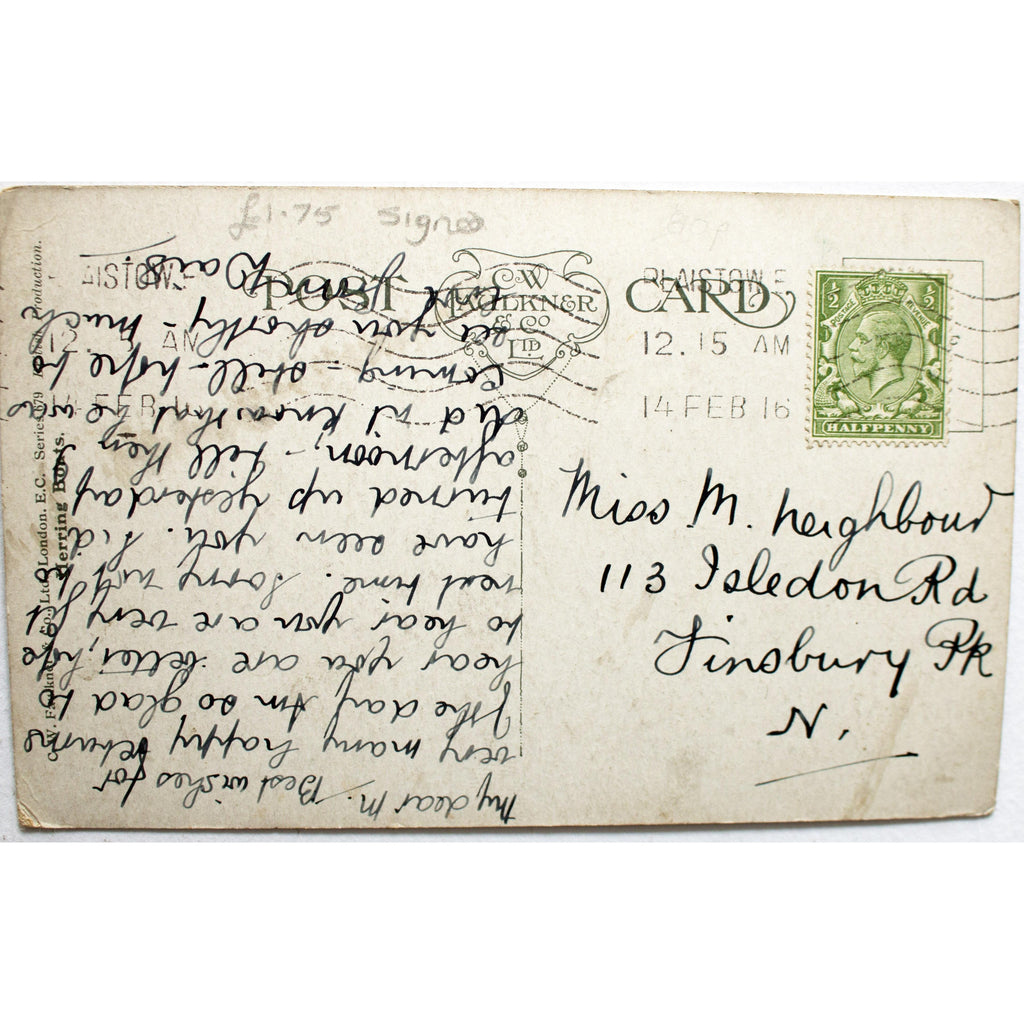 £1.75 Signed
POST CARD
C.W.
FAULKNER
& Co
LTD
PLAISTOW. E
12.15 AM
14 FEB 16
AISTOW. E
12. AM
14 FEB 1
½ ½
POSTAGE REVENUE
HALFPENNY
Miss M. Neighbour
113 Isledon Rd
Finsbury Pk
N.
My dear M. Best wishes for
very many happy returns
of the day. Am so glad to
hear you are better, hope
to hear you are very fit
next time. Sorry not to
have seen you. Sid
turned up yesterday
afternoon, - till then I
did n't know that he was
coming - still - hope to
see you shortly - much
love
C. W. Faulkner & Co., Ltd., London. E.C. Series 1679 Production.
Herring Boats.